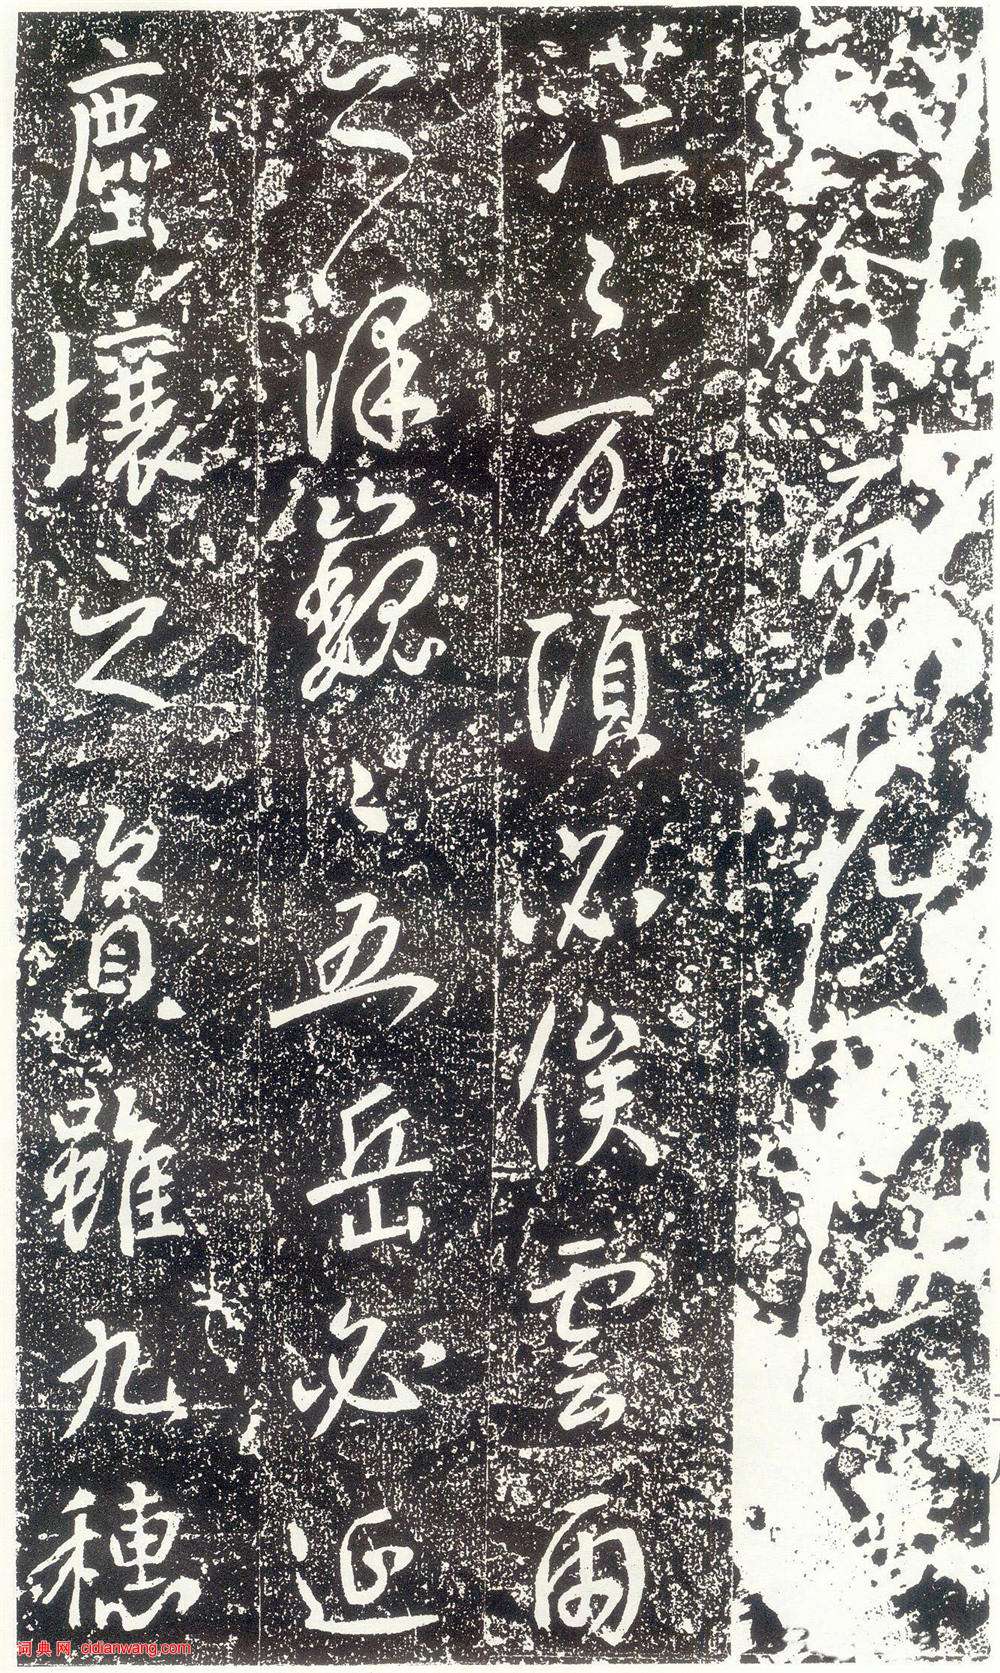 茫々万頃必俟雲雨
之澤巍々五岳必延
塵壤之資雖九穗
词典网 cidianwang.com